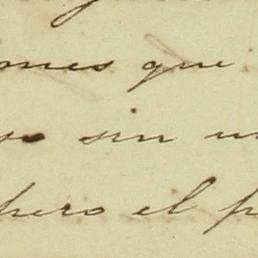 ones que
sin un
pero el p